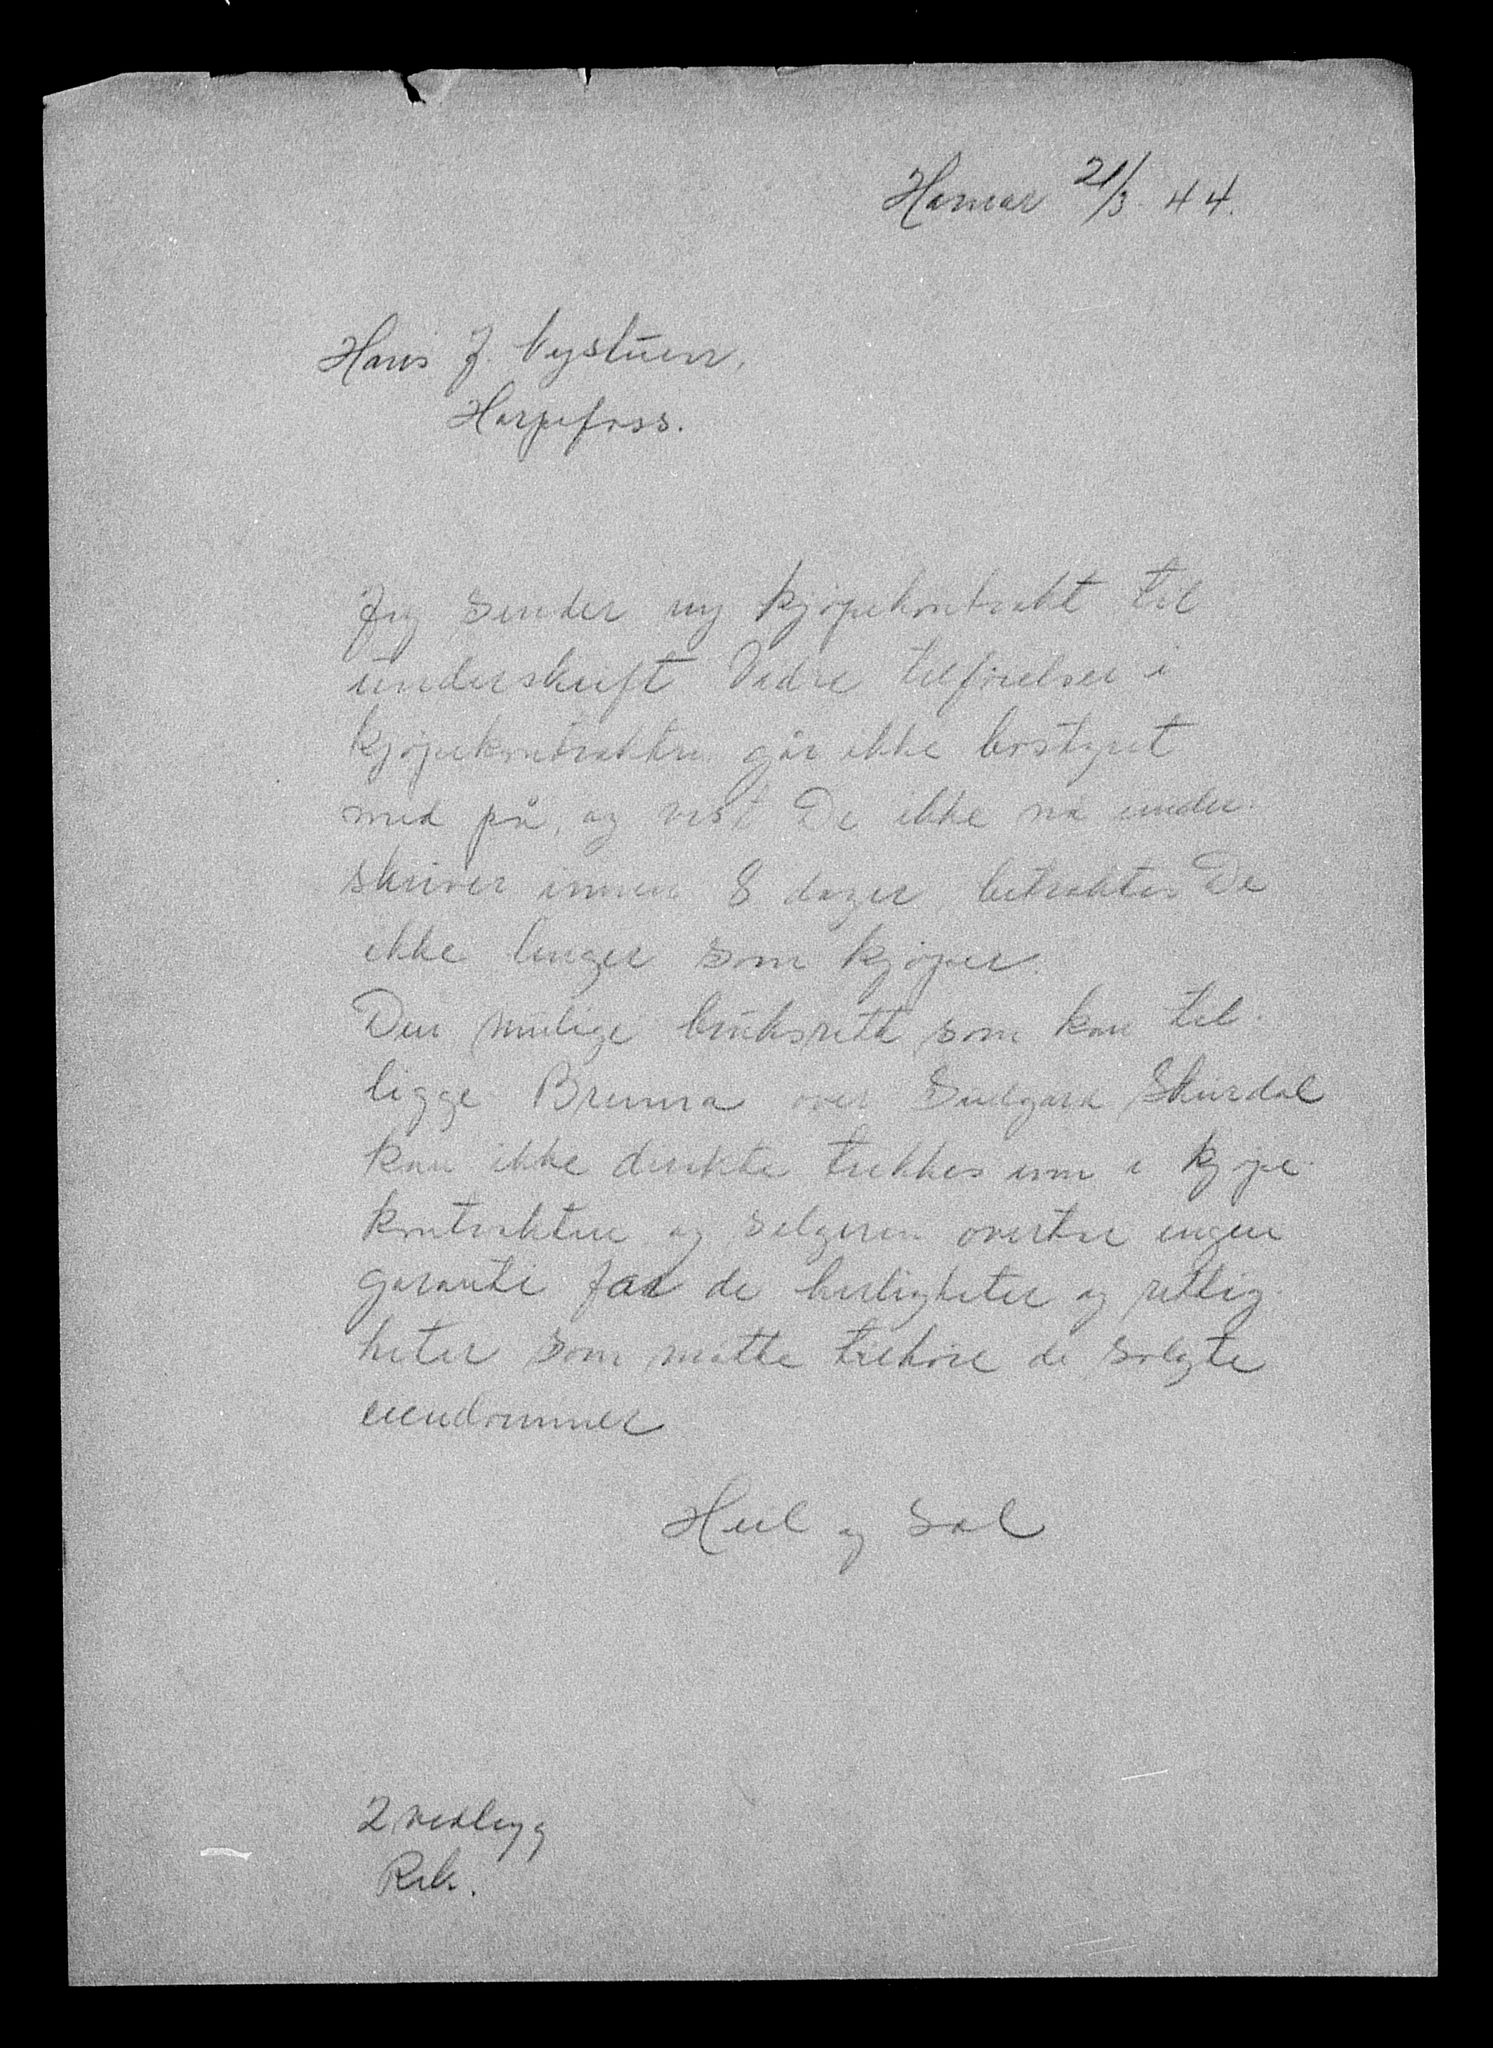 Hamar 21/3 44.
Hans J. Nystuen,
Harpefoss.
Jeg sender ny kjøpekontrakt til
underskrift Videre tilførelser i
kjøpekontrakten går ikke bostyret
med på, og vist De ikke nå under-
skriver innen 8 dager, betraktes De
ikke lenger som kjøper.
Den mulige bruksrett som kan til-
ligge Brenna over Sudgard Skurdal
kan ikke direkte trekkes inn i kjøpe-
kontrakten og selgeren overtar ingen
garanti for de herligheter og rettig-
heter som måtte tilhøre de solgte
eiendommer
Heil og Sæl
2 vedlegg
Rek.